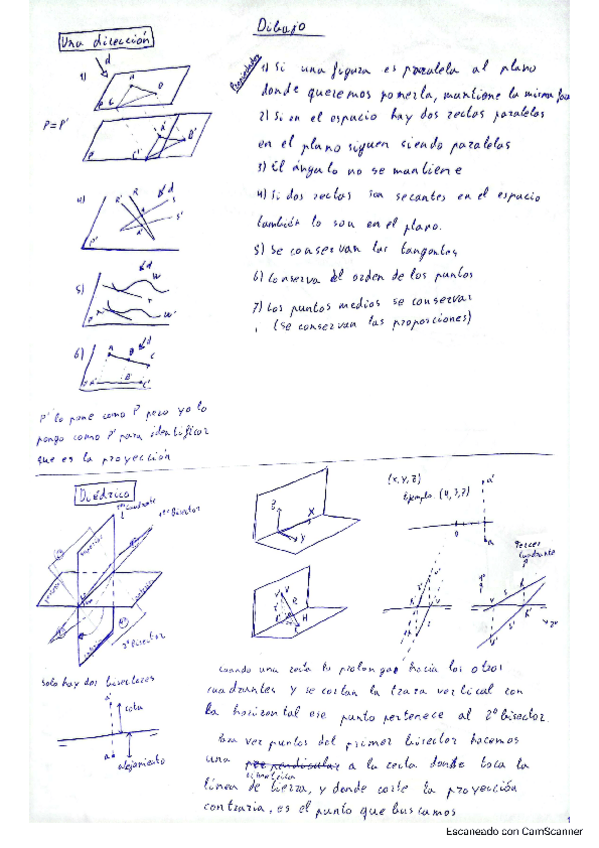 Dibujo
Una dirección
Propiedades
1) Si una figura es paralela al plano
donde queremos ponerla, mantiene la misma
2) Si en el espacio hay dos rectas paralelas
en el plano siguen siendo paralelas
3) El ángulo no se mantiene
4) Si dos rectas son secantes en el espacio
también lo son en el plano.
5) Se conservan las tangentes
6) Conserva el orden de los puntos
7) Los puntos medios se conservar
(se conservan las proporciones)
d
1)
P=P'
4)
5)
6)
P' lo pone como P pero yo lo
pongo como P' para identificar
que es la proyección
Diédrico
1er Cuadrante
1er Bisector
2º Bisector
Solo hay dos bisectores
cota
alejamiento
(x,y,z)
Ejemplo (4,3,7)
Tercer
Cuadrante
cuando una recta la prolongas hacia los otros
cuadrantes y se cortan la traza vertical con
la horizontal ese punto pertenece al 2º bisector.
Para ver puntos del primer bisector hacemos
una perpendicular a la recta donde toca la
simétrica
línea de tierra, y donde corte la proyección
contraria, es el punto que buscamos
1
Escaneado con CamScanner